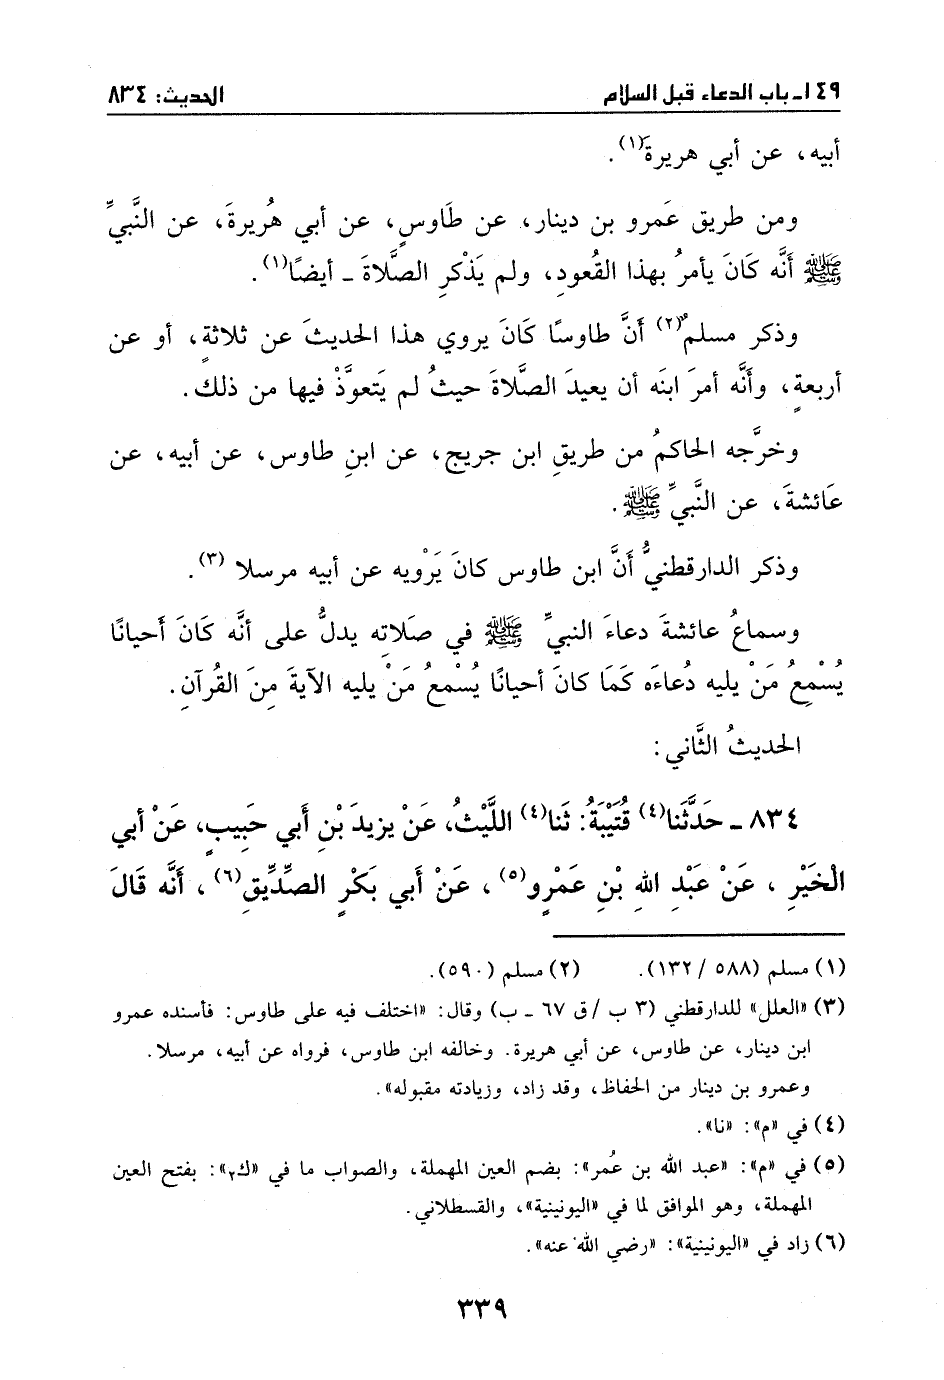 ١٤٩ـ باب الدعاء قبل السلام الحديث: ٨٣٤
أبيه، عن أبي هريرة(١).
ومن طريق عَمرو بن دينار، عن طَاوسٍ، عن أبي هُريرةَ، عن النَّبيِّ
ﷺ أنَّه كَانَ يأمرُ بهذا القُعودِ، ولم يَذْكرِ الصَّلاةَ ـ أيضًا(١).
وذكر مسلمٌ(٢) أنَّ طاوسًا كَانَ يروي هذا الحديثَ عن ثلاثةٍ، أو عن
أربعةٍ، وأنَّه أمرَ ابنَه أن يعيدَ الصَّلاةَ حيثُ لم يَتعوذَّ فيها من ذلك.
وخرَّجه الحاكمُ من طريقِ ابن جريج، عن ابنِ طاوس، عن أبيه، عن
عَائشةَ، عن النَّبيِّ ﷺ.
وذكر الدارقطنيُّ أنَّ ابن طاوس كانَ يَرْويه عن أبيه مرسلا (٣).
وسماعُ عائشةَ دعاءَ النبيِّ ﷺ في صَلاتِه يدلُّ على أنَّه كَانَ أحيانًا
يُسْمِعُ مَنْ يليه دُعاءَه كَمَا كانَ أحيانًا يُسْمعُ مَنْ يليه الآيةَ مِنَ القُرآنِ.
الحديثُ الثَّاني:
٨٣٤ ـ حَدَّثَنا(٤) قُتَيْبَةُ: ثَنا(٤) اللَّيْثُ، عَنْ يزيدَ بْنِ أَبي حَبِيبٍ، عَنْ أبي
الْخَيْرِ ، عَنْ عَبْدِ اللهِ بْنِ عَمْرٍو(٥) ، عَنْ أَبي بَكْرٍ الصِّدِّيقِ(٦) ، أَنَّه قَالَ
(١) مسلم (٥٨٨ / ١٣٢). (٢) مسلم (٥٩٠).
(٣) «العلل» للدارقطني (٣ ب / ق ٦٧ ـ ب) وقال: «اختلف فيه على طاوس: فأسنده عمرو
ابن دينار، عن طاوس، عن أبي هريرة. وخالفه ابن طاوس، فرواه عن أبيه، مرسلا.
وعمرو بن دينار من الحفاظ، وقد زاد، وزيادته مقبوله».
(٤) في «م»: «نا».
(٥) في «م»: «عبد الله بن عُمر»: بضم العين المهملة، والصواب ما في «ك٢»: بفتح العين
المهملة، وهو الموافق لما في «اليونينية»، والقسطلاني.
(٦) زاد في «اليونينية»: «رضي الله عنه».
٣٣٩